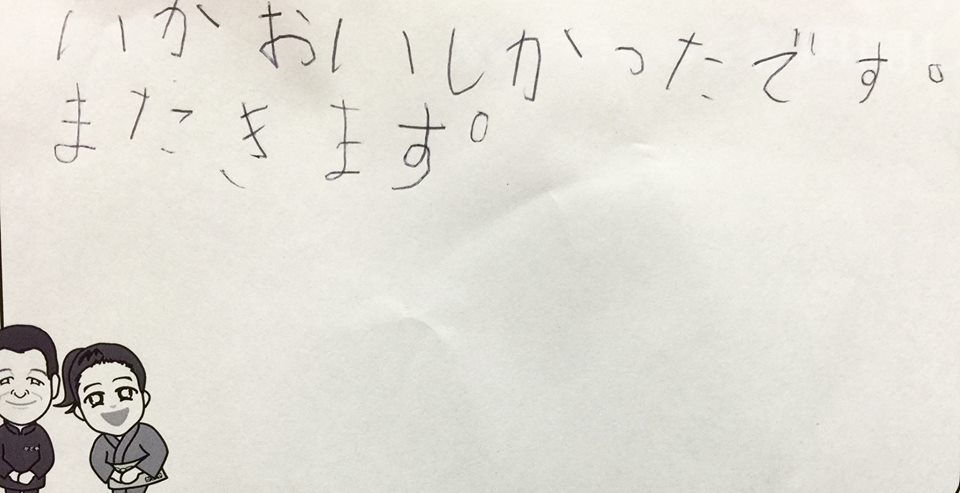 いかおいしかったです。
またきます。